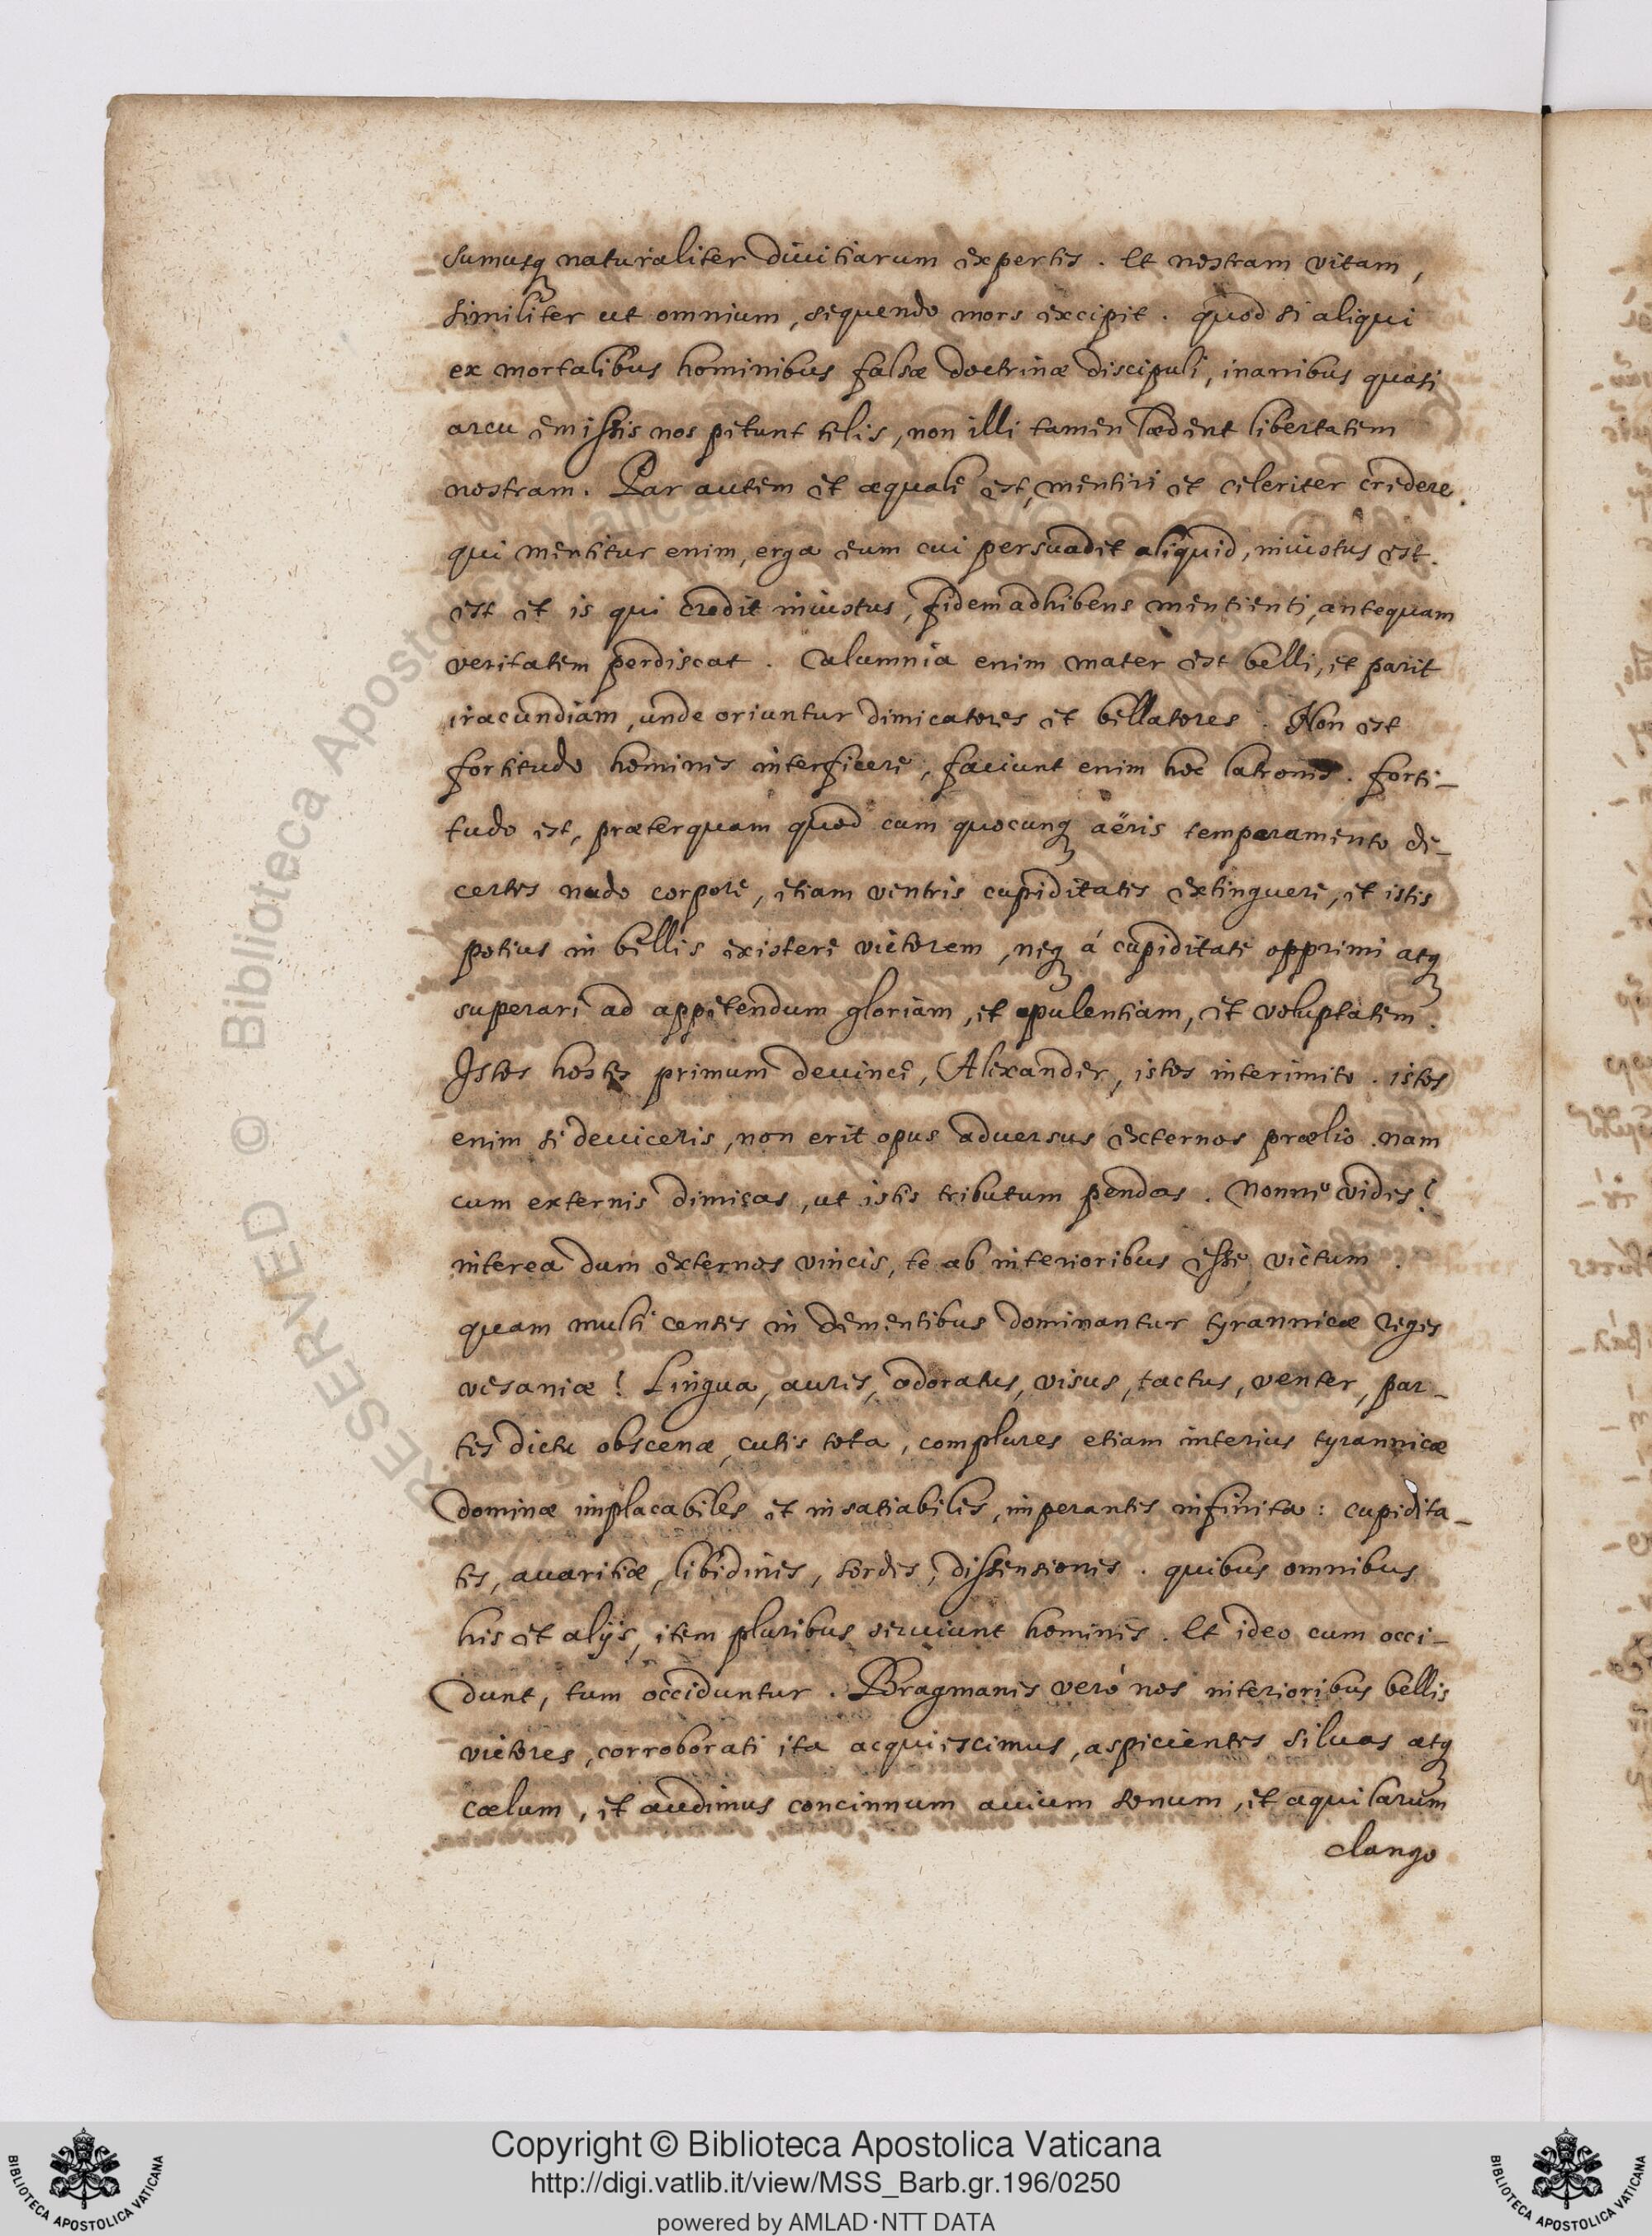 sumusq naturaliter divitiarum expertes. Et nostram vitam,
similiter ut omnium, sequendo mors excipit. quod si aliqui
ex mortalibus hominibus falsæ doctrinæ discipuli, inanibus quasi
arcu emissis nos petunt telis, non illi tamen lædent libertatem
nostram. Par autem et æquale est, mentiri et celeriter credere.
qui mentitur enim, erga eum cui persuadet aliquid, iniustus est.
est et is qui credit iniustus, fidem adhibens mentienti, antequam
veritatem perdiscat. Calumnia enim mater est belli, et parit
iracundiam, unde oriuntur dimicatores et bellatores. Non est
fortitudo homines interficere, faciunt enim hoc latrones. forti-
tudo est, præterquam quod cum quocunq aëris temperamento de-
certes nudo corpore, etiam ventris cupiditates extinguere, et istis
potius in bellis existere victorem, neq á cupiditate opprimi atq
superari ad appetendum gloriam, et opulentiam, et voluptatem.
Istos hostes primum devince, Alexander, istos interimito. istos
enim si deviceris, non erit opus adversus externos prælio. nam
cum externis dimicas, ut istis tributum pendas. Nonne vides?
interea dum externos vincis, te ab interioribus esse victum.
quam multi censes in dementibus dominantur tyrannicæ reges
vesaniæ! Lingua, aures, odoratus, visus, tactus, venter, par-
tes dictu obscenæ, cutis tota, complures etiam interius tyrannicæ
dominæ implacabiles et insatiabiles, imperantes infinita: cupidita-
tes, avaritiæ, libidines, sordes, dissensiones. quibus omnibus
his et alijs, item pluribus serviunt homines. Et ideo cum occi-
dunt, tum occiduntur. Bragmanes veró nos interioribus bellis
victores, corroborati ita acquiescimus, aspicientes silvas atq
cælum, et audimus concinnum avium sonum, et aquilarum
clango
RESERVED © Biblioteca Apostolica Vaticana
Copyright © Biblioteca Apostolica Vaticana
http://digi.vatlib.it/view/MSS_Barb.gr.196/0250
powered by AMLAD·NTT DATA
BIBLIOTECA APOSTOLICA VATICANA
BIBLIOTECA APOSTOLICA VATICANA